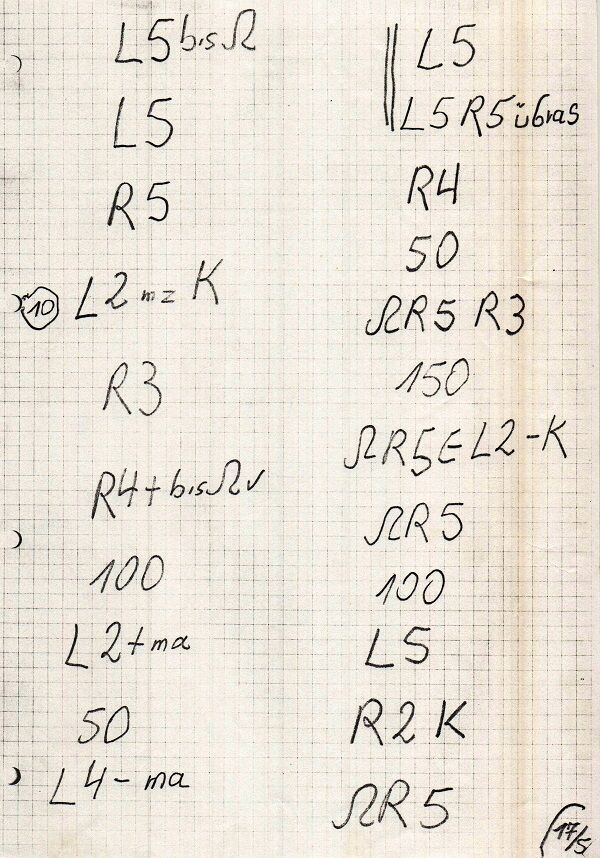 L5 bis Ω
L5
R5
10 L2 mz K
R3
R4+ bis Ω v
100
L2+ ma
50
L4- ma
L5
L5 R5 übras
R4
50
ΩR5 R3
150
ΩR5 E L2-K
ΩR5
100
L5
R2 K
ΩR5
17/5